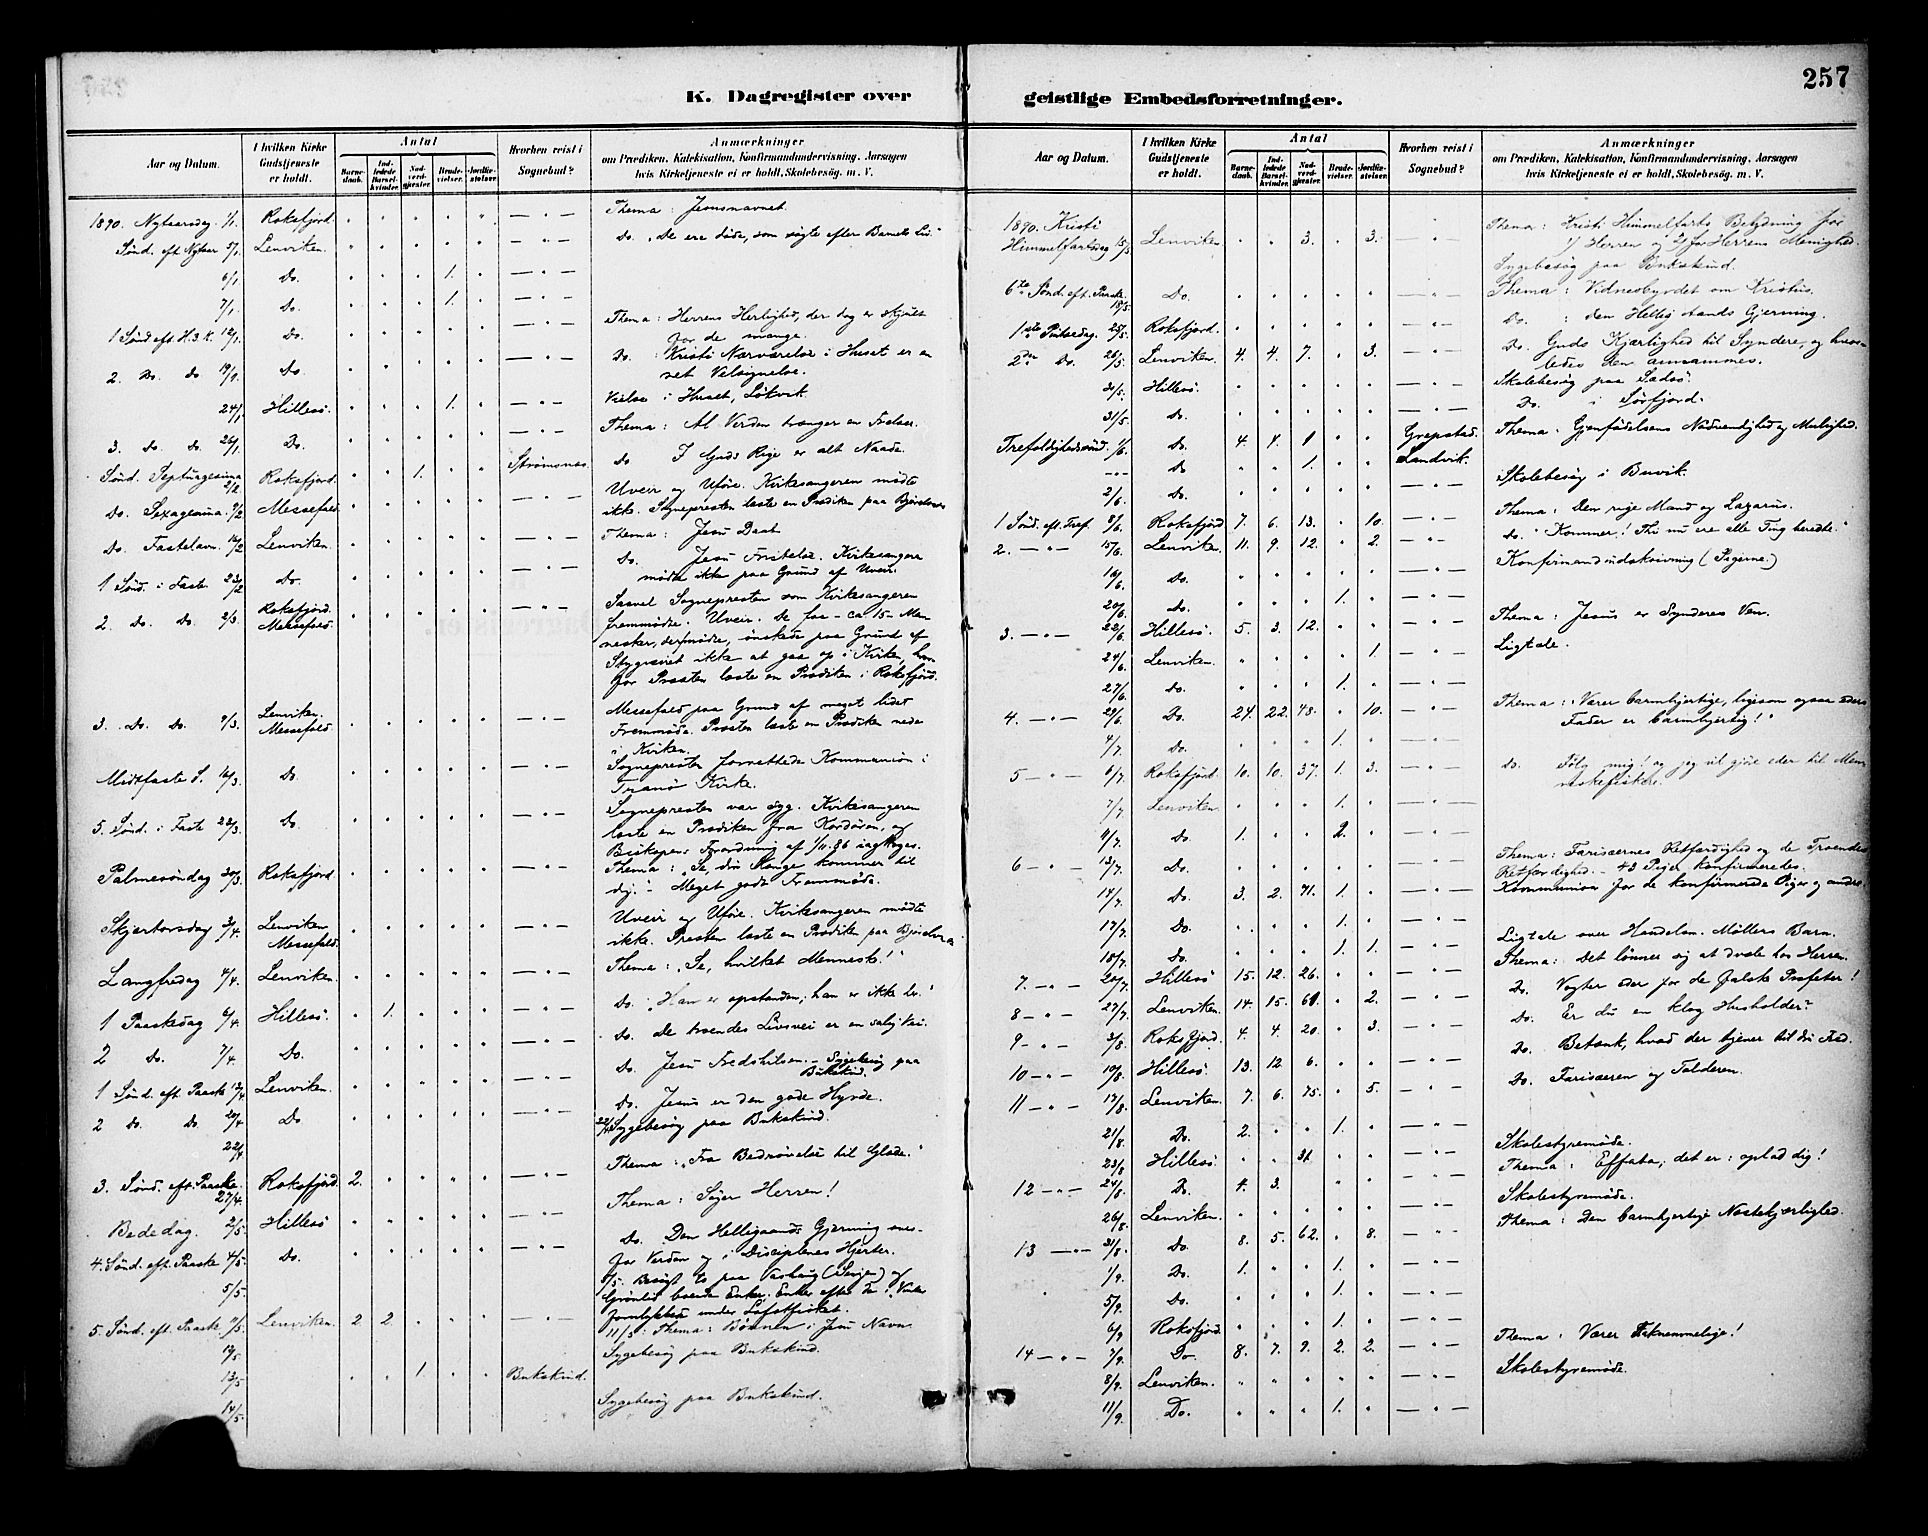 257
K. Dagregister over geistlige Embedsforretninger.
Aar og Datum. I hvilken Kirke Gudstjeneste er holdt. Antal Barnedaab. Indledede Barselkvinder. Nadverdgjæster. Brudevielser. Jordfæstelser Hvorhen reist i Sognebud? Anmærkninger om Prædiken, Katekisation, Konfirmandundervisning, Aarsagen hvis Kirketjeneste ei er holdt, Skolebesøg, m. V.
1890. Nytaarsdag. 1/1. Roksfjord. Thema: Jesusnavnet.
Sønd. eft. Nytaar 5/1. Lenviken. Do. "De ere døde, som søgte efter Barnets Liv."
6/1 Do. 1.
7/1. Do. 1.
1 Sønd. eft. H. 3 K. 12/1. Do. Thema: Herrens Herlighed, der dog er skjult
for de mange.
2. Do. Do 19/1. Do. Do. Kristi Nærværelse i Huset er en
ret Velsignelse.
24/1 Hillesø. 1. Vielse i Huset, Løkvik.
3. Do. Do. 26/1. Do. Thema: Al Verden trænger en Frelser.
Sønd. Septuagesima 2/2 Roksfjord. 1. Strømsnes. Do I Guds Rige er alt Naade.
Do. Sexagesima. 9/2 Messefald. Uveir og Uføre. Kirkesangeren mødte
ikke. Sognepresten læste en Prædiken paa
Do. Fastelavn. 16/2 Lenviken. Thema: Jesu Daab
1 Sønd. i Faste 23/2 Do. Do. Jesu Fristelse. Kirkesangere
mødte ikke paa Grund af Uveir.
2. Do. Do. 2/3. Roksfjord. Messefald. Saavel Sognepresten som Kirkesangeren
fremmødte. Uveir. De faa - ca 15 - Mennesker, der mødte, ønskede paa Grund af
Stygveiret ikke at gaa op i Kirken, hvorfor Præsten læste en Prædiken i Roksfjord.
3. Do. Do. 9/3. Lenviken. Messefald. Messefald paa Grund af meget lidet
Fremmøde. Presten læste en Prædiken nede
i Kirken.
Midtfaste S. 16/3. Do. Sognepresten forrettede Kommunion i
Tranø Kirke.
5. Sønd. i Faste 23/3. Do Sognepresten var syg. Kirkesangeren
læste en Prædiken fra Kordøren, og
Biskopens Forordning af 1/11. 86 iagttoges.
Palmesøndag 30/3. Roksfjord. Thema: "Se, din Konge kommer til
dig." Meget godt Fremmøde.
Skjærtorsdag 3/4. Lenviken Messefald. Uveir og Uføre. Kirkesangeren mødte
ikke. Presten læste en Prædiken paa
Langfredag 4/4. Lenviken. Thema: "Se, hvilket Menneske!"
1 Paaskedag 6/4. Hillesø. 1. Do. "Han er opstanden; han er ikke her."
2 Do. 7/4. Do. Do. De troendes Livsvei er en salig Vei.
1 Sønd. eft. Paaske 13/4 Lenviken. Do. Jesu Fredshilsen. - Sygebesøg paa
Bukskind.
2 Do. Do. 20/4 Do Do. Jesus er den gode Hyrde.
22/4 22/4 Sygebesøg paa Bukskind.
3. Sønd. eft. Paaske. 27/4. Roksfjord. 2. Thema: "Fra Bedrøvelse til Glæde."
Bededag. 2/5. Hillesø Thema: Søger Herren!
4. Sønd. eft. Paaske 4/5. Do. Do. Den Helligaands Gjerning ovenfor Verden og i Disciplenes Hjerter.
5/5. 5/5. Besøgt to paa Vashaug (Senjen) og
Grønli boende Enker. Enker efter de i Vinter
forulykkede under Lofotfisket.
5. Sønd. eft. Paaske Lenviken. 2 2. 11/5: Thema: Bønnen i Jesu Navn.
12/5 Sygebesøg paa Bukskind.
13/5 1. Bukskind.
14/5. Sygebesøg paa Bukskind.
Aar og Datum. I hvilken Kirke Gudstjeneste er holdt. Antal Barnedaab. Indledede Barselkvinder. Nadverdgjæster. Brudevielser. Jordfæstelser. Hvorhen reist i Sognebud? Anmærkninger om Prædiken, Katekisation, Konfirmandundervisning, Aarsagen hvis Kirketjeneste ei er holdt, Skolebesøg, m. V.
1890. Kristi Himmelfartsdag 15/5 Lenviken. 3. 3. Thema: Kristi Himmelfarts Betydning for
1/ Herren og 2/ for Herrens Menighed.
Sygebesøg paa Bukskind.
6te Sønd. eft. Paaske. 18/5. Do. Thema: Vidnesbyrdet om Kristus.
1ste Pintsedag. 25/5. Roksfjord. Do. : Den Hellig Aands Gjerning.
2den Do. 26/5. Lenviken. 4. 4. 7. 3. Do. Guds Kjærlighed til Syndere, og hvorledes den annammes.
30/5. Hillesø. Skolebesøg paa
31/5. Do. Do. i Sørfjord.
Trefoldighedssønd. 1/6. Do. 4. 4. 1 Grepstad. Thema: Gjenfødelsens Nødvendighed og Mulighed.
Do 1. Landvik.
2/6. Do. Skolebesøg i Buvik.
1 Sønd. eft. Tref. 8/6. Roksfjord 7. 6. 13. 10. Thema: Den rige Mand og Lazarus.
2. 15/6. Lenviken. 11. 9. 12. 2. Do. "Kommer! Thi nu ere alle Ting beredte."
16/6. Do. Konfirmandudskrivning (Pigerne.)
20/6. Do. 1.
3. 22/6. Hillesø. 5. 3. 12. Thema: Jesus er Synderes Ven.
24/6. Lenviken. 1. Ligtale.
27/6. Do. 1.
4. 29/6. Do. 24. 22. 48. 10. Thema: "Værer barmhjertige, ligesom ogsaa eders
Fader er barmhjertig!"
4/7. Do. 1.
5 6/7. Roksfjord. 10. 10. 37. 1. 3. Do. Følg mig! og jeg vil gjøre eder til Menneskefiskere.
7/7. Lenviken. 1.
Do. 1. 2.
6 13/7. Do. Thema: Farisæernes Retfærdighed og de Troendes
Retfærdighed. - 43 Piger konfirmeredes.
14/7. Do 3. 2. 71. 1. Kommunion for de konfirmerede Piger og andre.
17/7. Do. 1.
18/7. Do. 1. 1. Ligtale over Handelsm. Møllers Barn.
7. 20/7. Hillesø 15. 12. 26. Thema: Det lønner sig at dvæle hos Herren.
8 27/7. Lenviken. 14. 15. 61. 2. Do. Vogter eder for de falske Profeter!
9 3/8. Roksfjord. 4. 4. 20. 3. Do. Er du en klog Husholder?
10 10/8. Hillesø. 13. 12 6. Do. Betænk, hvad der tjener til din Fred.
11 17/8. Lenviken. 7. 6. 75. 5. Do. Farisæeren og Tolderen.
21/8. Do. 2. 1.
23/8 Hillesø. 31. Skolestyremøde.
12 24/8. Do. 4. 3. Thema: Effata; det er: oplad dig!
26/8. Lenviken. Skolestyremøde.
13 31/8. Do. 8. 5. 62. 8. Thema: Den barmhjertige Næstekjærlighed.
1/9. Do. 1. 1.
5/9. Do. 1.
6/9 Roksfjord. 1.
14 7/9. Do. 8. 7. 9. 2. 2. Thema: Værer taknemmelige!
8/9. Lenviken. Skolestyremøde.
11/9. Do. 1.